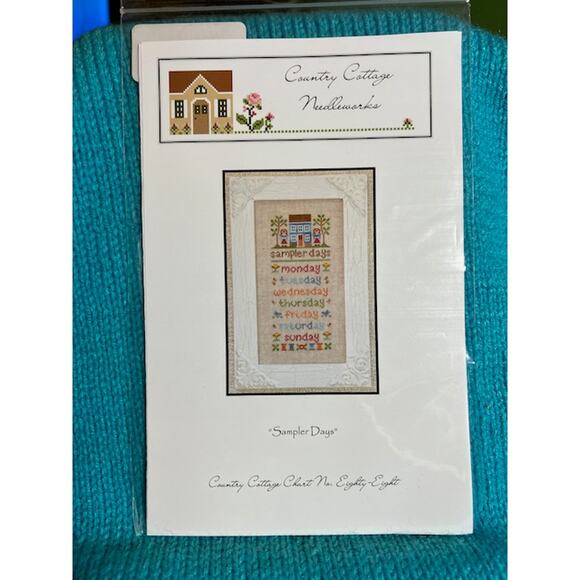 Country Cottage
Needleworks
sampler days
monday
tuesday
wednesday
thursday
friday
saturday
sunday
"Sampler Days"
Country Cottage Chart No. Eighty-Eight